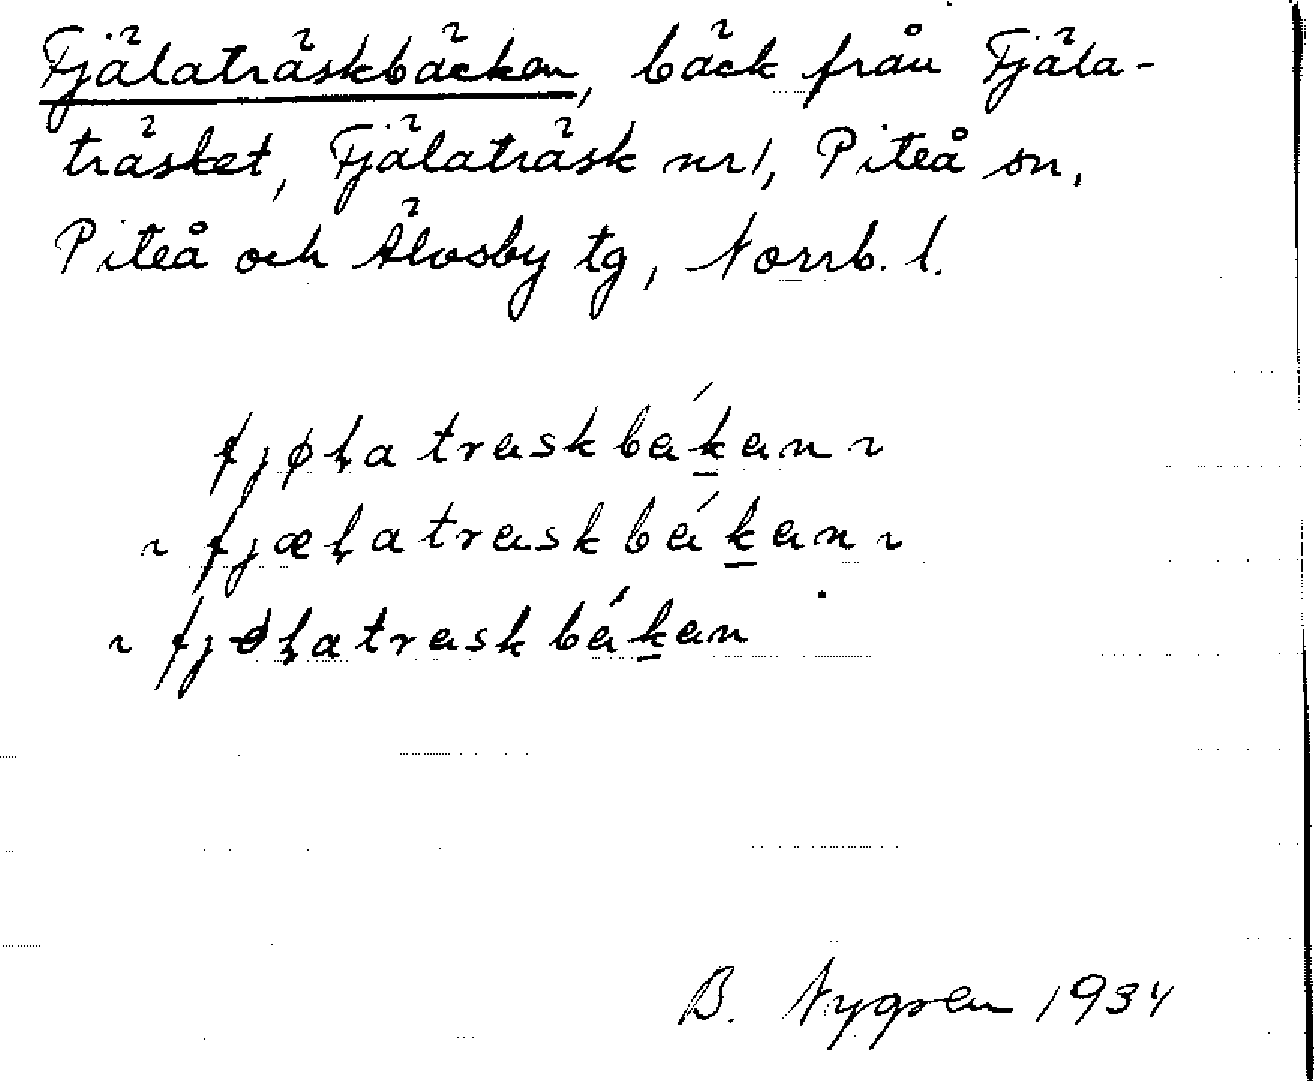 Fjälaträskbäcken, bäck från Fjäla-
träsket, Fjälaträsk nr 1, Piteå sn,
Piteå och Älvsby tg, Norrb. l.
fjøɫatraskbákan ~
~ fjæɫatraskbákan ~
~ fjɵɫatraskbákan
B. Nygren 1934